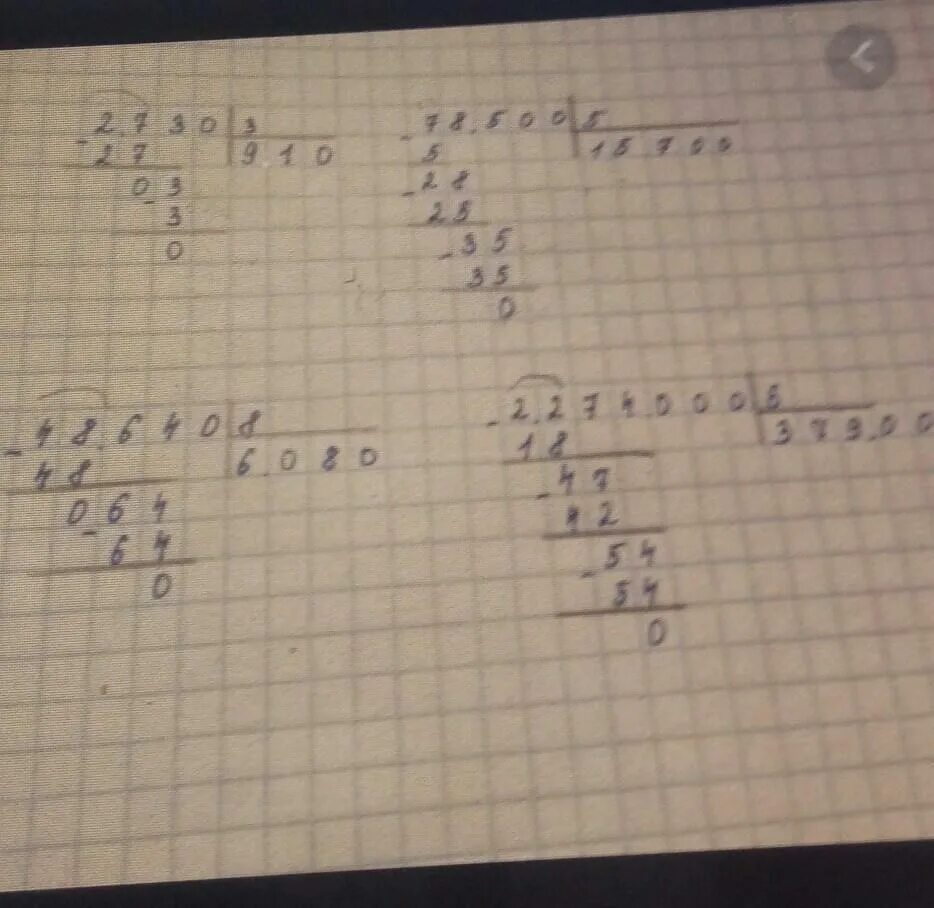 2.730 3
- 27 9.10
03
- 3
0
- 78.500 5
5 15700
- 28
25
- 35
35
0
- 48.640 8
48 6.080
064
- 64
0
- 2.274.000 6
18 379.00
- 47
42
- 54
54
0